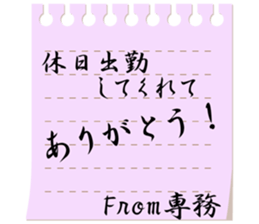 休日出勤
してくれて
ありがとう!
From専務